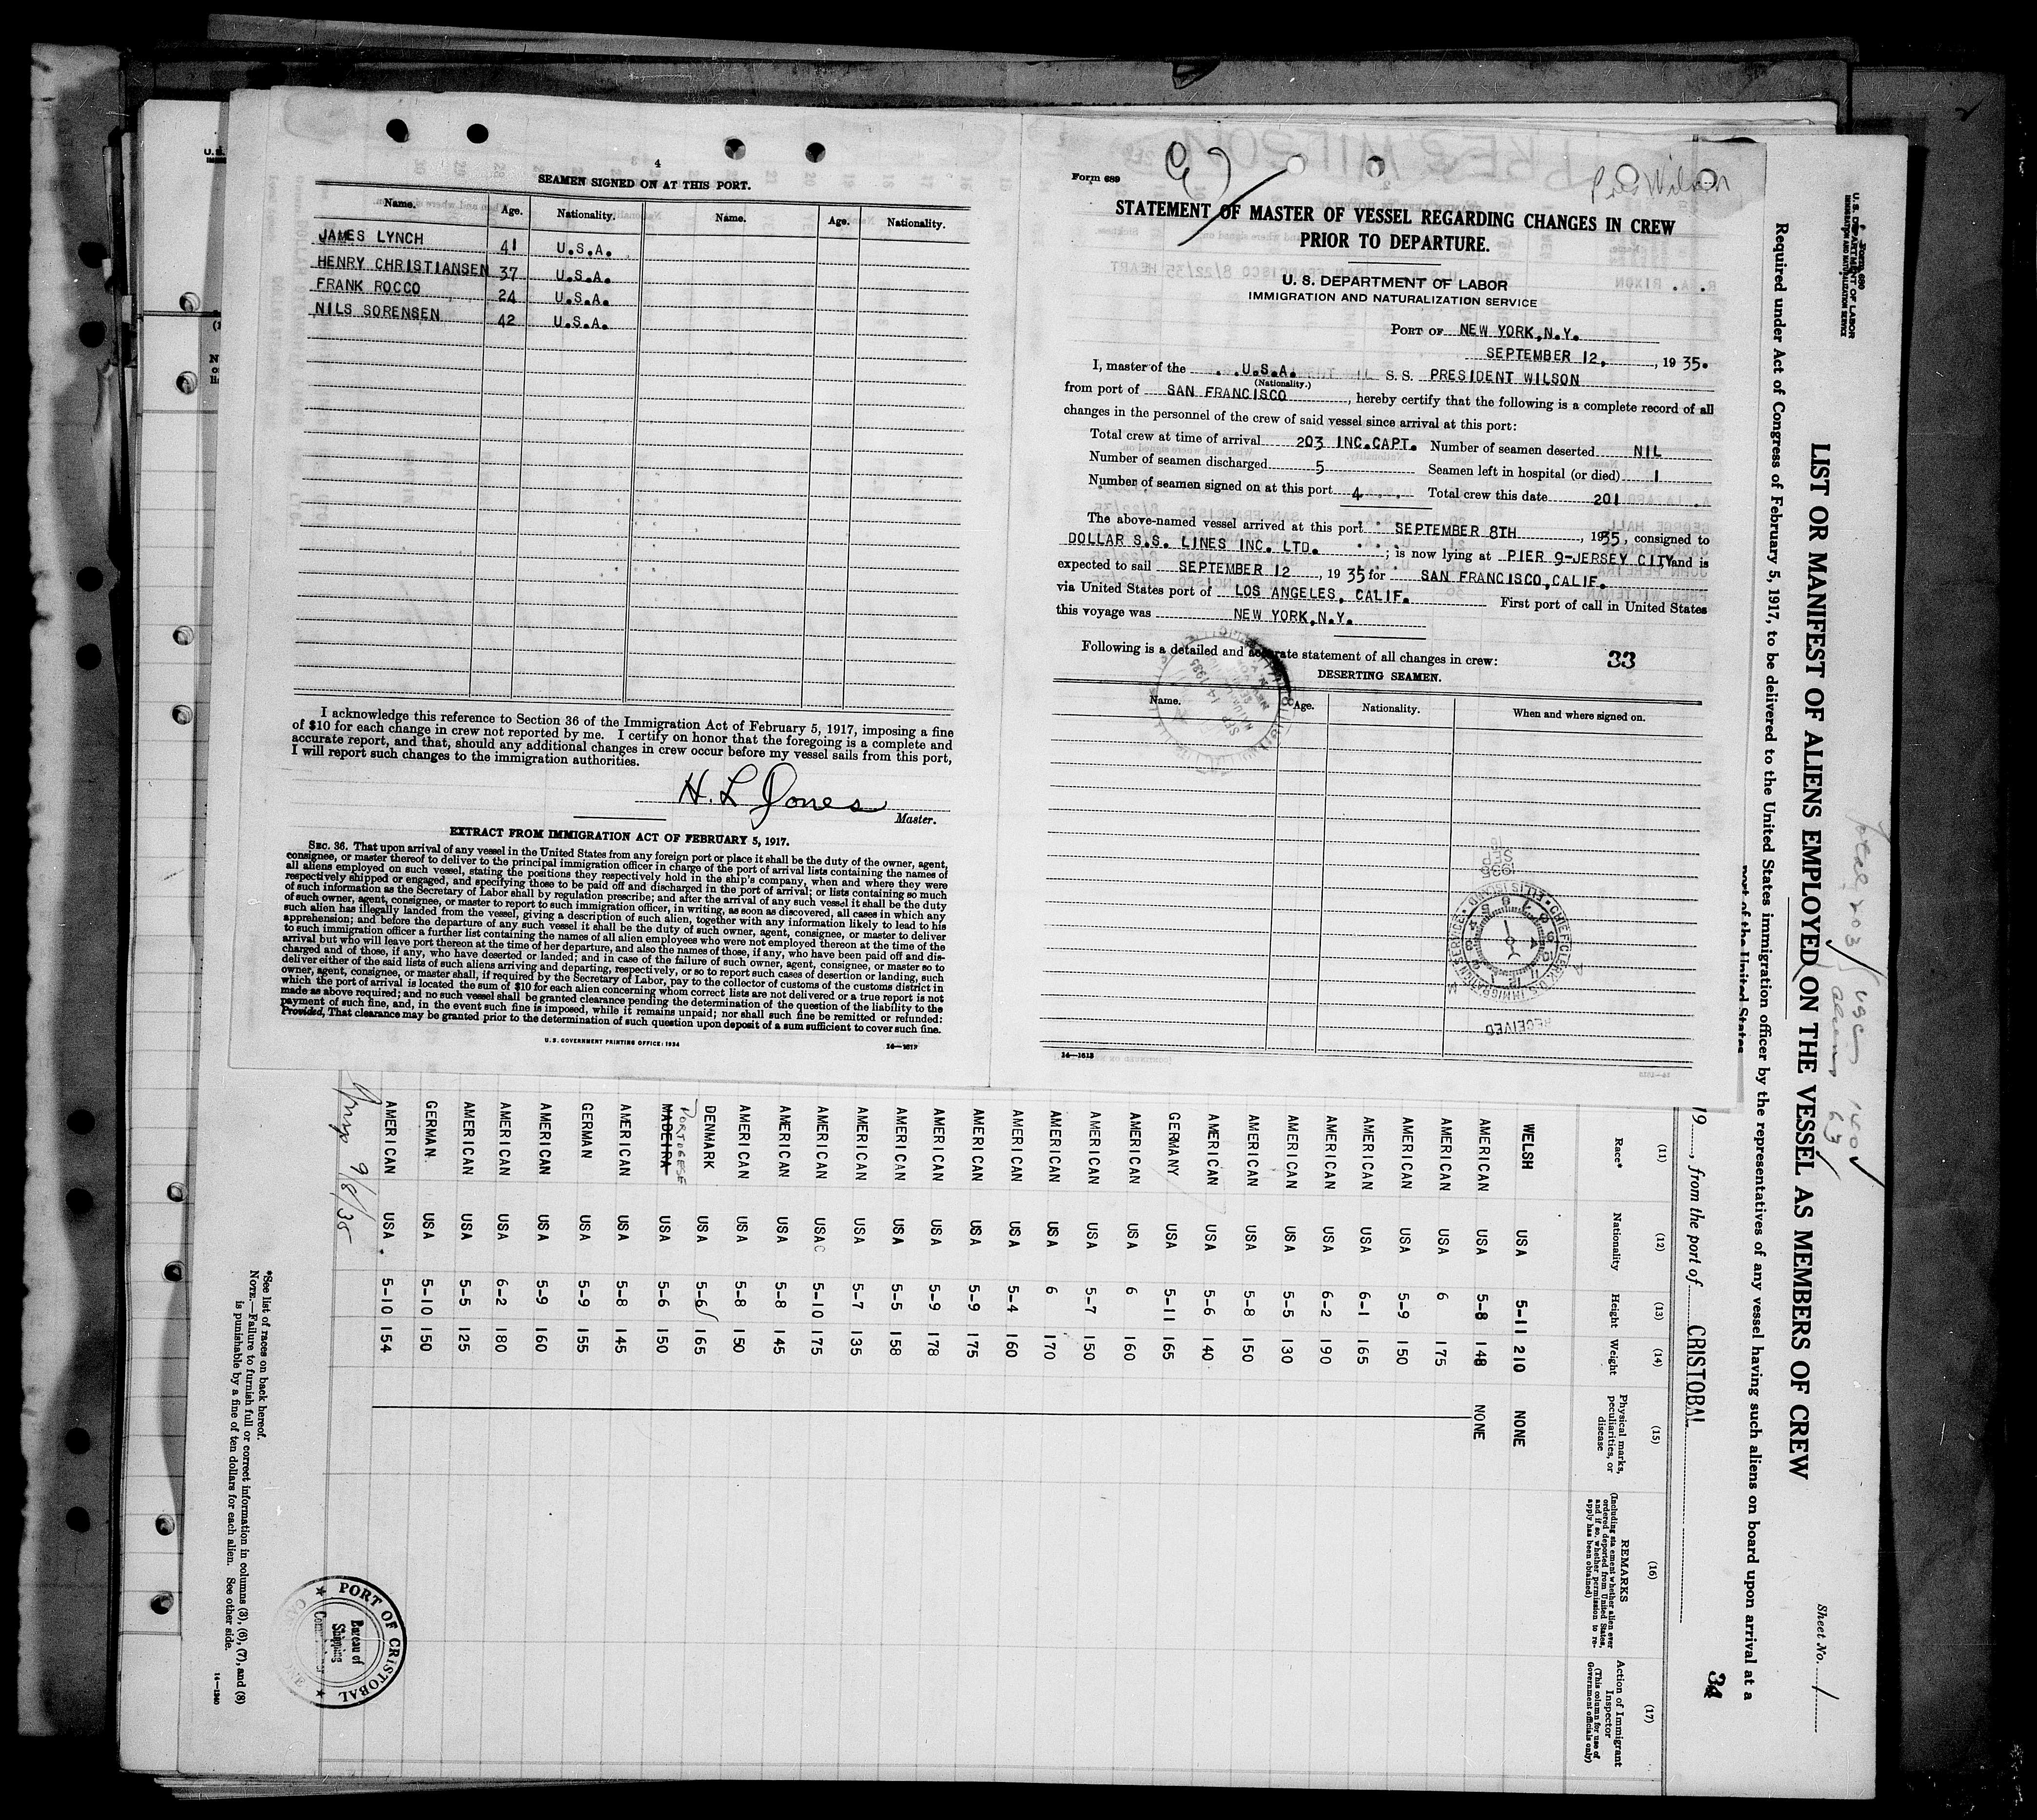 4
SEAMEN SIGNED ON AT THIS PORT.
Name. Age. Nationality. Name. Age. Nationality.
JAMES LYNCH 41 U.S.A.
HENRY CHRISTIANSEN 37 U.S.A.
FRANK ROCCO 24 U.S.A.
NILS SORENSEN 42 U.S.A.
I acknowledge this reference to Section 36 of the Immigration Act of February 5, 1917, imposing a fine
of $10 for each change in crew not reported by me. I certify on honor that the foregoing is a complete and
accurate report, and that, should any additional changes in crew occur before my vessel sails from this port,
I will report such changes to the immigration authorities.
H. L Jones
Master.
EXTRACT FROM IMMIGRATION ACT OF FEBRUARY 5, 1917.
SEC. 36. That upon arrival of any vessel in the United States from any foreign port or place it shall be the duty of the owner, agent,
consignee, or master thereof to deliver to the principal immigration officer in charge of the port of arrival lists containing the names of
all aliens employed on such vessel, stating the positions they respectively hold in the ship's company, when and where they were
respectively shipped or engaged, and specifying those to be paid off and discharged in the port of arrival; or lists containing so much
of such information as the Secretary of Labor shall by regulation prescribe; and after the arrival of any such vessel it shall be the duty
of such owner, agent, consignee, or master to report to such immigration officer, in writing, as soon as discovered, all cases in which any
such alien has illegally landed from the vessel, giving a description of such alien, together with any information likely to lead to his
apprehension; and before the departure of any such vessel it shall be the duty of such owner, agent, consignee, or master to deliver
to such immigration officer a further list containing the names of all alien employees who were not employed thereon at the time of the
arrival but who will leave port thereon at the time of her departure, and also the names of those, if any, who have been paid off and dis-
charged and of those, if any, who have deserted or landed; and in case of the failure of such owner, agent, consignee, or master so to
deliver either of the said lists of such aliens arriving and departing, respectively, or so to report such cases of desertion or landing, such
owner, agent, consignee, or master shall, if required by the Secretary of Labor, pay to the collector of customs of the customs district in
which the port of arrival is located the sum of $10 for each alien concerning whom correct lists are not delivered or a true report is not
made as above required; and no such vessel shall be granted clearance pending the determination of the question of the liability to the
payment of such fine, and, in the event such fine is imposed, while it remains unpaid; nor shall such fine be remitted or refunded:
Provided, That clearance may be granted prior to the determination of such question upon deposit of a sum sufficient to cover such fine.
U.S. GOVERNMENT PRINTING OFFICE: 1934
Form 689
Pres Wilson
STATEMENT OF MASTER OF VESSEL REGARDING CHANGES IN CREW
PRIOR TO DEPARTURE.
U. S. DEPARTMENT OF LABOR
IMMIGRATION AND NATURALIZATION SERVICE
PORT OF NEW YORK,N.Y.
SEPTEMBER 12, , 1935.
I, master of the U.S.A. S.S. PRESIDENT WILSON
(Nationality.)
from port of SAN FRANCISCO , hereby certify that the following is a complete record of all
changes in the personnel of the crew of said vessel since arrival at this port:
Total crew at time of arrival 203 INC.CAPT. Number of seamen deserted NIL
Number of seamen discharged 5 Seamen left in hospital (or died) 1
Number of seamen signed on at this port 4 Total crew this date 201
The above-named vessel arrived at this port SEPTEMBER 8TH , 1935, consigned to
DOLLAR S.S. LINES INC. LTD. ; is now lying at PIER 9-JERSEY CITY and is
expected to sail SEPTEMBER 12 , 1935 for SAN FRANCISCO,CALIF.
via United States port of LOS ANGELES, CALIF. First port of call in United States
this voyage was NEW YORK,N.Y.
Following is a detailed and accurate statement of all changes in crew: 33
DESERTING SEAMEN.
Name. Age. Nationality. When and where signed on.
1935
SEP
RECEIVED
CHIEF CLERK U.S. IMMIGRATION SERVICE ELLIS ISLAND
14—1613
U. S. DEPARTMENT OF LABOR
IMMIGRATION AND NATURALIZATION SERVICE
LIST OR MANIFEST OF ALIENS EMPLOYED ON THE VESSEL AS MEMBERS OF CREW
Sheet No. 1
Total 203
USC 140
Aliens 63
Required under Act of Congress of February 5, 1917, to be delivered to the United States immigration officer by the representatives of any vessel having such aliens on board upon arrival at a
port of the United States
19 , from the port of CRISTOBAL
34
(11) (12) (13) (14) (15) (16) (17)
Race* Nationality Height Weight Physical marks, peculiarities, or disease REMARKS (Including statement whether alien ever ordered deported from United States, and if so, whether permission to re-apply has been obtained) Action of Immigrant Inspector (This column for use of Government officials only)
WELSH USA 5-11 210 NONE
AMERICAN USA 5-8 148 NONE
AMERICAN USA 6 175
AMERICAN USA 5-9 150
AMERICAN USA 6-1 165
AMERICAN USA 6-2 190
AMERICAN USA 5-5 130
AMERICAN USA 5-8 150
AMERICAN USA 5-6 140
GERMANY USA 5-11 165
AMERICAN USA 6 160
AMERICAN USA 5-7 150
AMERICAN USA 6 170
AMERICAN USA 5-4 160
AMERICAN USA 5-9 175
AMERICAN USA 5-9 178
AMERICAN USA 5-5 158
AMERICAN USA 5-7 135
AMERICAN USAC 5-10 175
AMERICAN USA 5-8 145
AMERICAN USA 5-8 150
DENMARK USA 5-6 165
PORTUGESE
MADEIRA USA 5-6 150
AMERICAN USA 5-8 145
GERMAN USA 5-9 155
AMERICAN USA 5-9 160
AMERICAN USA 6-2 180
AMERICAN USA 5-5 125
GERMAN. USA 5-10 150
AMERICAN USA 5-10 154
9/8/35
*See list of races on back hereof.
NOTE.—Failure to furnish full or correct information in columns (3), (6), (7), and (8)
is punishable by a fine of ten dollars for each alien. See other side.
14—1240
PORT OF CRISTOBAL
Bureau of
Shipping
Commissioner